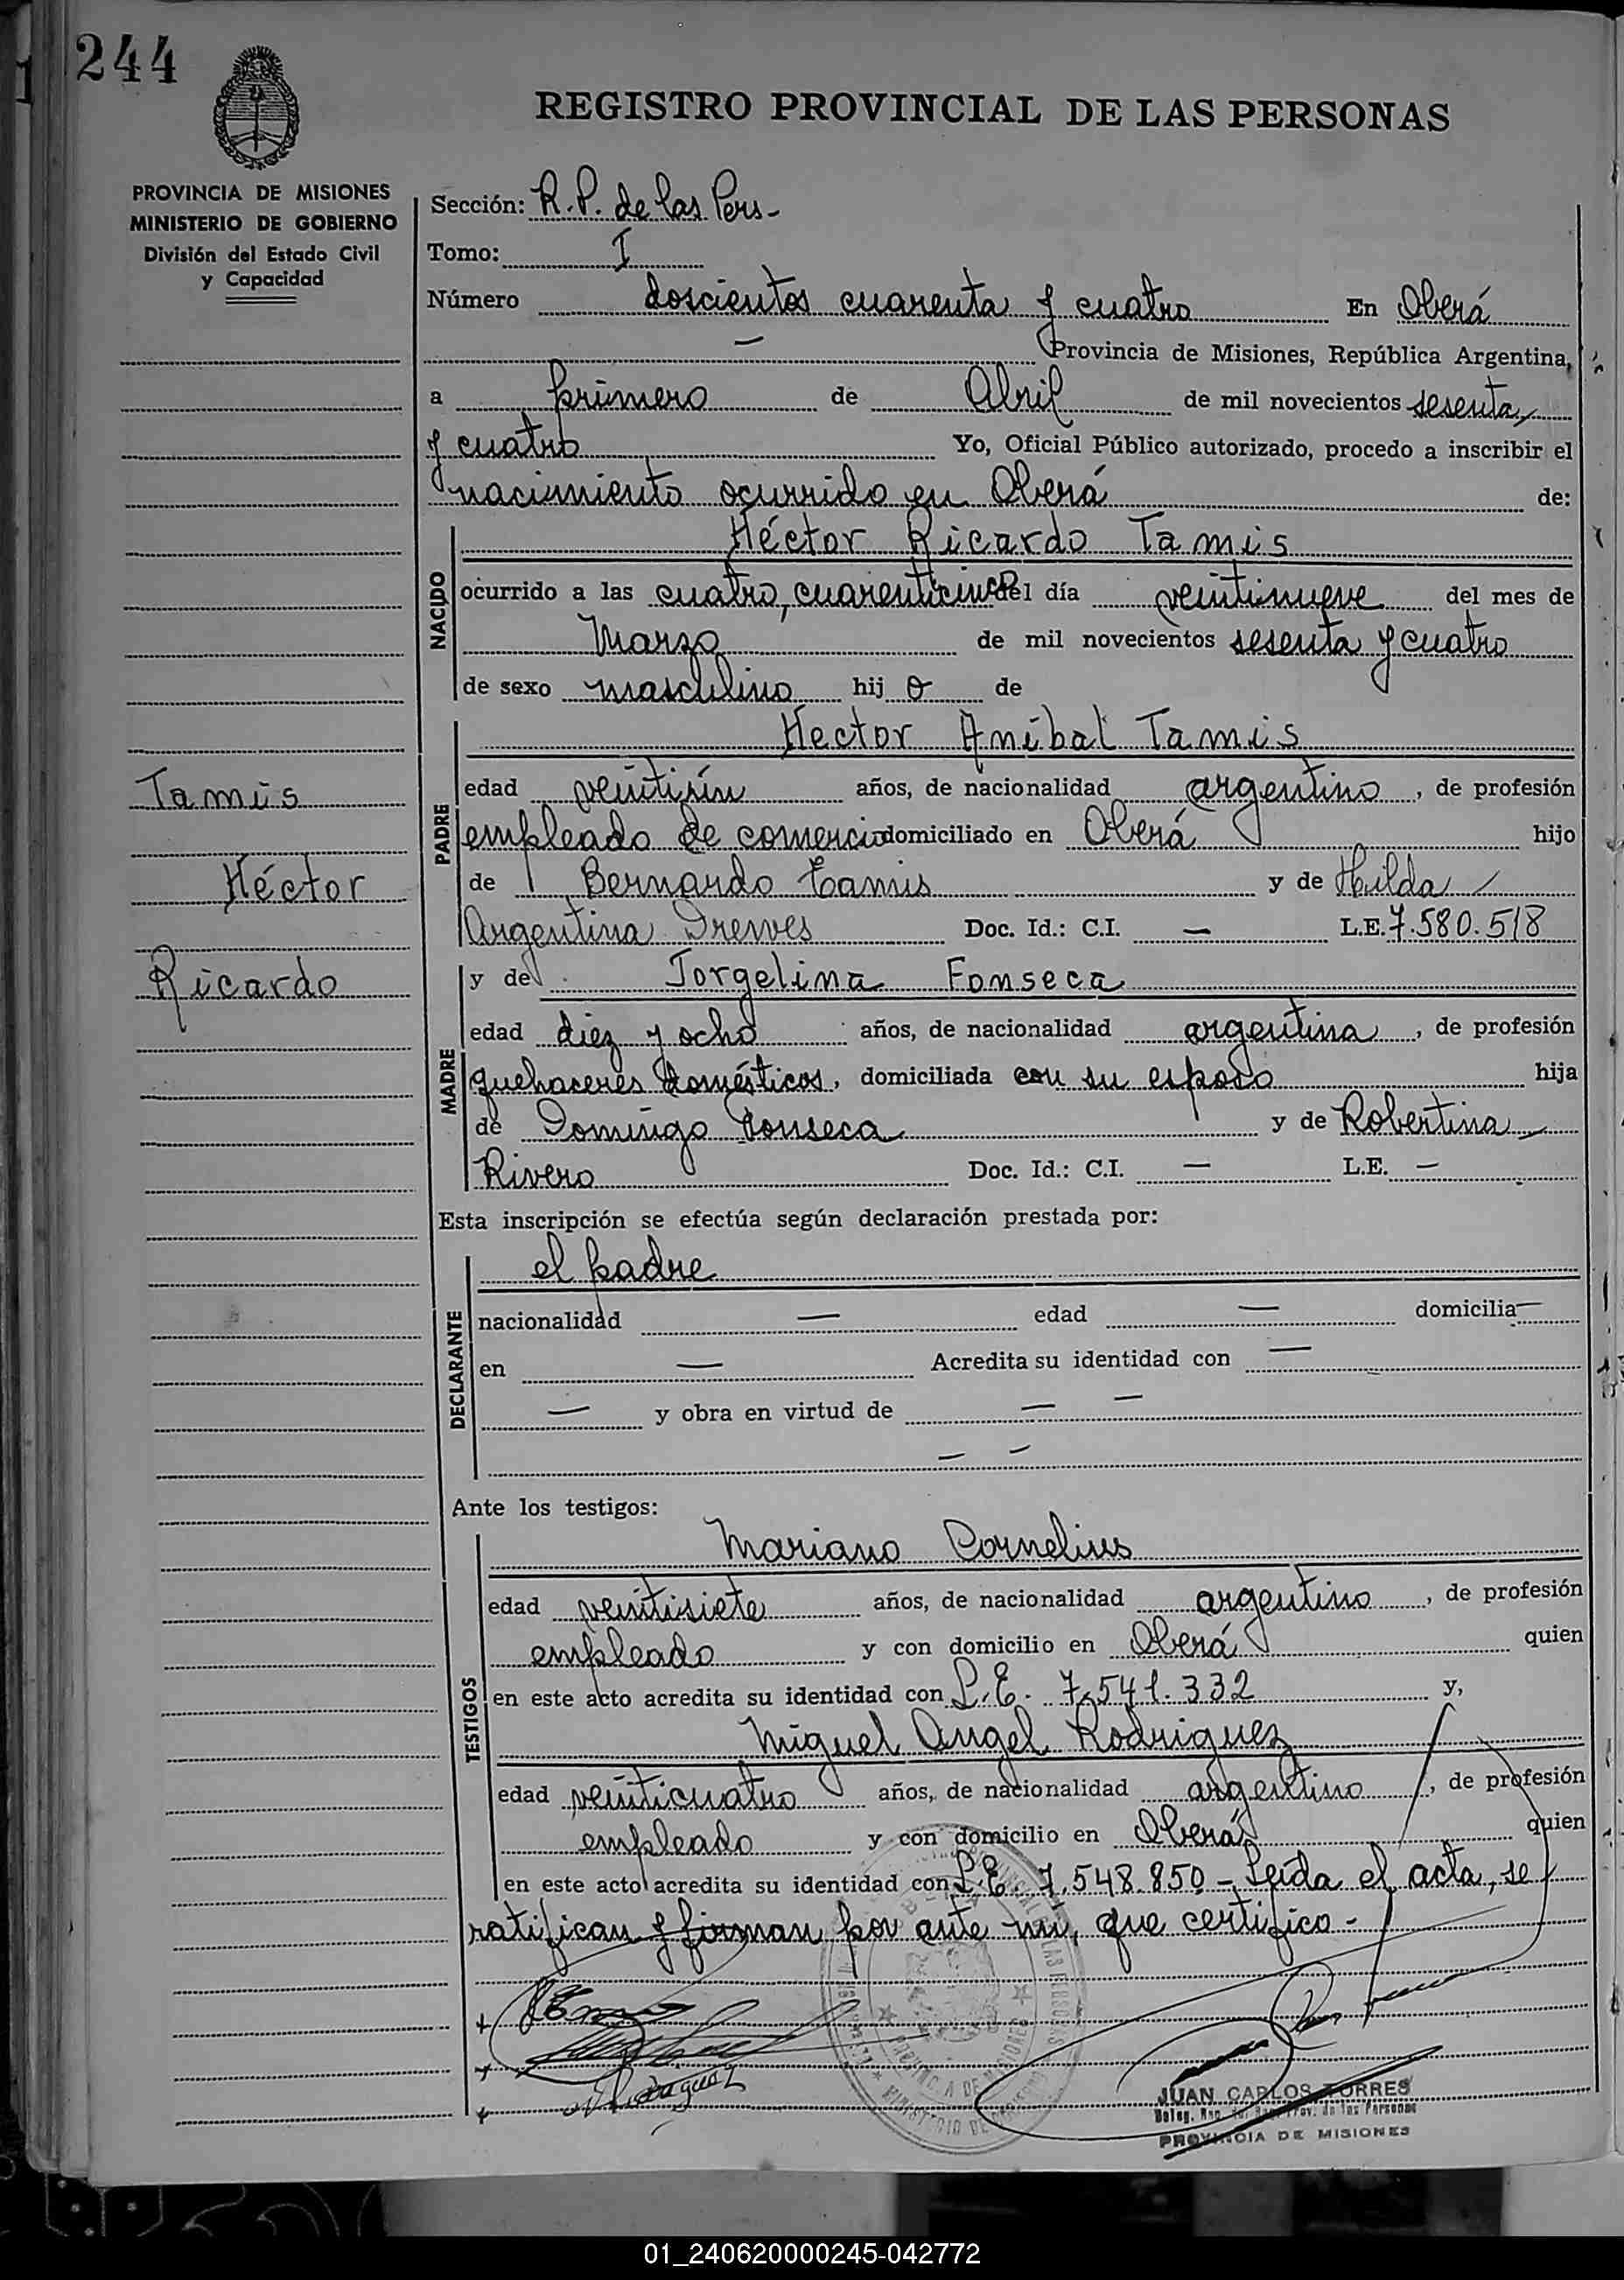 244
REGISTRO PROVINCIAL DE LAS PERSONAS
PROVINCIA DE MISIONES
MINISTERIO DE GOBIERNO
División del Estado Civil
y Capacidad
Tamis
Héctor
Ricardo
Sección: R. P. de las Pers-
Tomo: I
Número doscientos cuarenta y cuatro En Oberá
— Provincia de Misiones, República Argentina,
a primero de Abril de mil novecientos sesenta
y cuatro Yo, Oficial Público autorizado, procedo a inscribir el
nacimiento ocurrido en Oberá de:
NACIDO
Héctor Ricardo Tamis
ocurrido a las cuatro, cuarenticinco del día veintinueve del mes de
Marzo de mil novecientos sesenta y cuatro
de sexo masculino hij o de
PADRE
Hector Aníbal Tamis
edad veintiún años, de nacionalidad argentino, de profesión
empleado de comercio domiciliado en Oberá hijo
de Bernardo Tamis y de Hilda
Argentina Drewes Doc. Id.: C.I. — L.E. 7.580.518
MADRE
y de Jorgelina Fonseca
edad diez y ocho años, de nacionalidad argentina, de profesión
quehaceres domésticos, domiciliada con su esposo hija
de Domingo Fonseca y de Robertina
Rivero Doc. Id.: C.I. — L.E. —
Esta inscripción se efectúa según declaración prestada por:
DECLARANTE
el padre
nacionalidad — edad — domicilia—
en — Acredita su identidad con —
— y obra en virtud de — —
— —
Ante los testigos:
TESTIGOS
Mariano Cornelius
edad veintisiete años, de nacionalidad argentino, de profesión
empleado y con domicilio en Oberá quien
en este acto acredita su identidad con L.E. 7.541.332 y,
Miguel Angel Rodriguez
edad veinticuatro años, de nacionalidad argentino, de profesión
empleado y con domicilio en Oberá quien
en este acto acredita su identidad con L.E. 7.548.850 - Leída el acta, se
ratifican y firman por ante mi, que certifico -
JUAN CARLOS TORRES
PROVINCIA DE MISIONES
01_240620000245-042772